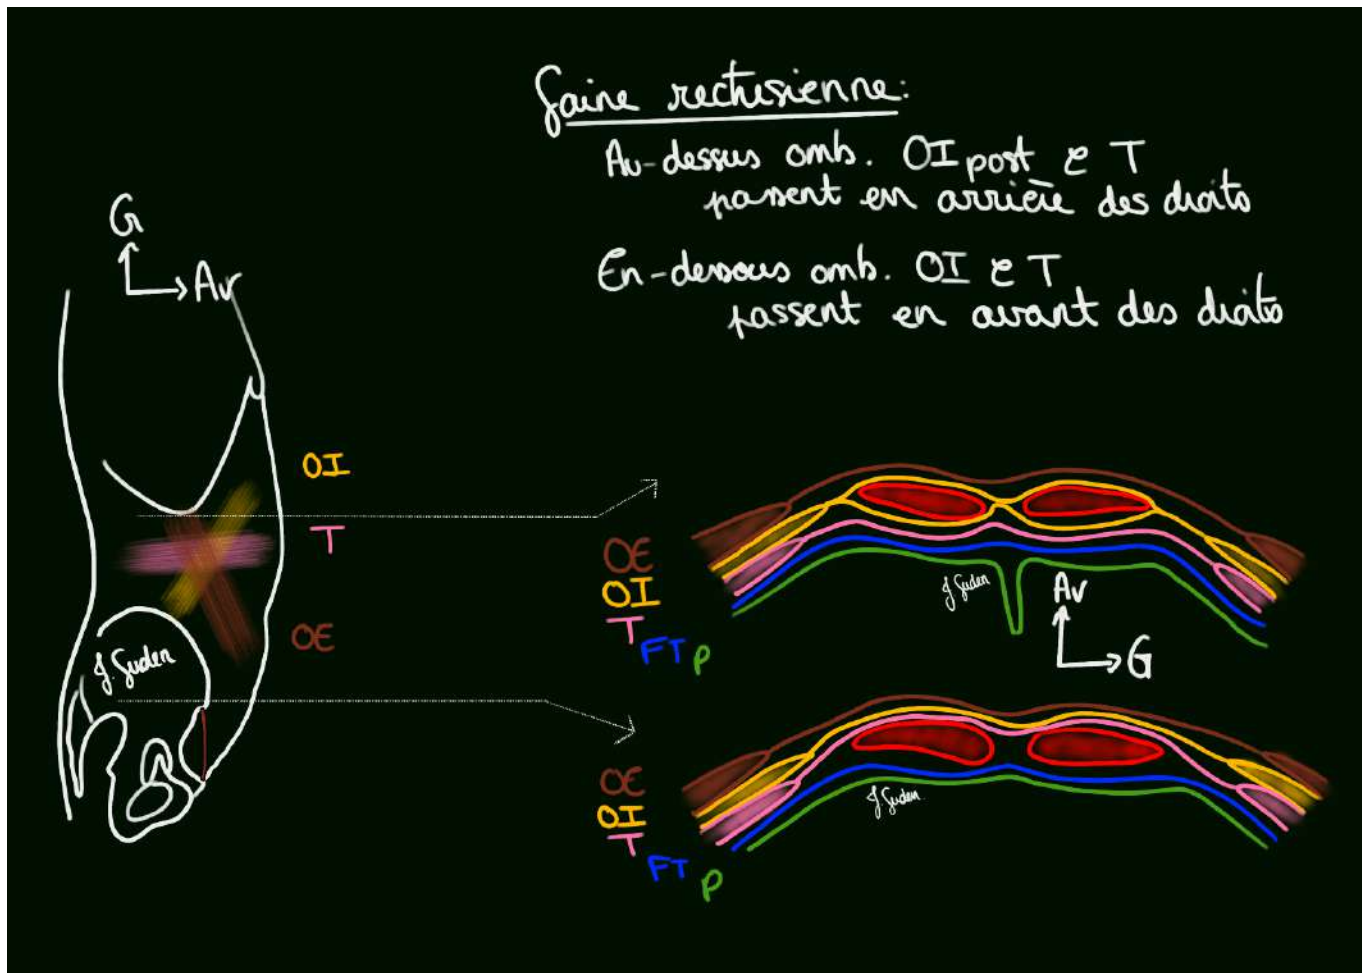 Gaine rectusienne:
Au-dessus omb. OI post & T
passent en arrière des droits
En-dessous omb. OI & T
passent en avant des droits
G
Av
OI
T
OE
J. Suden
OE
OI
T
FT P
J. Suden
Av
G
OE
OI
T
FT P
J. Suden